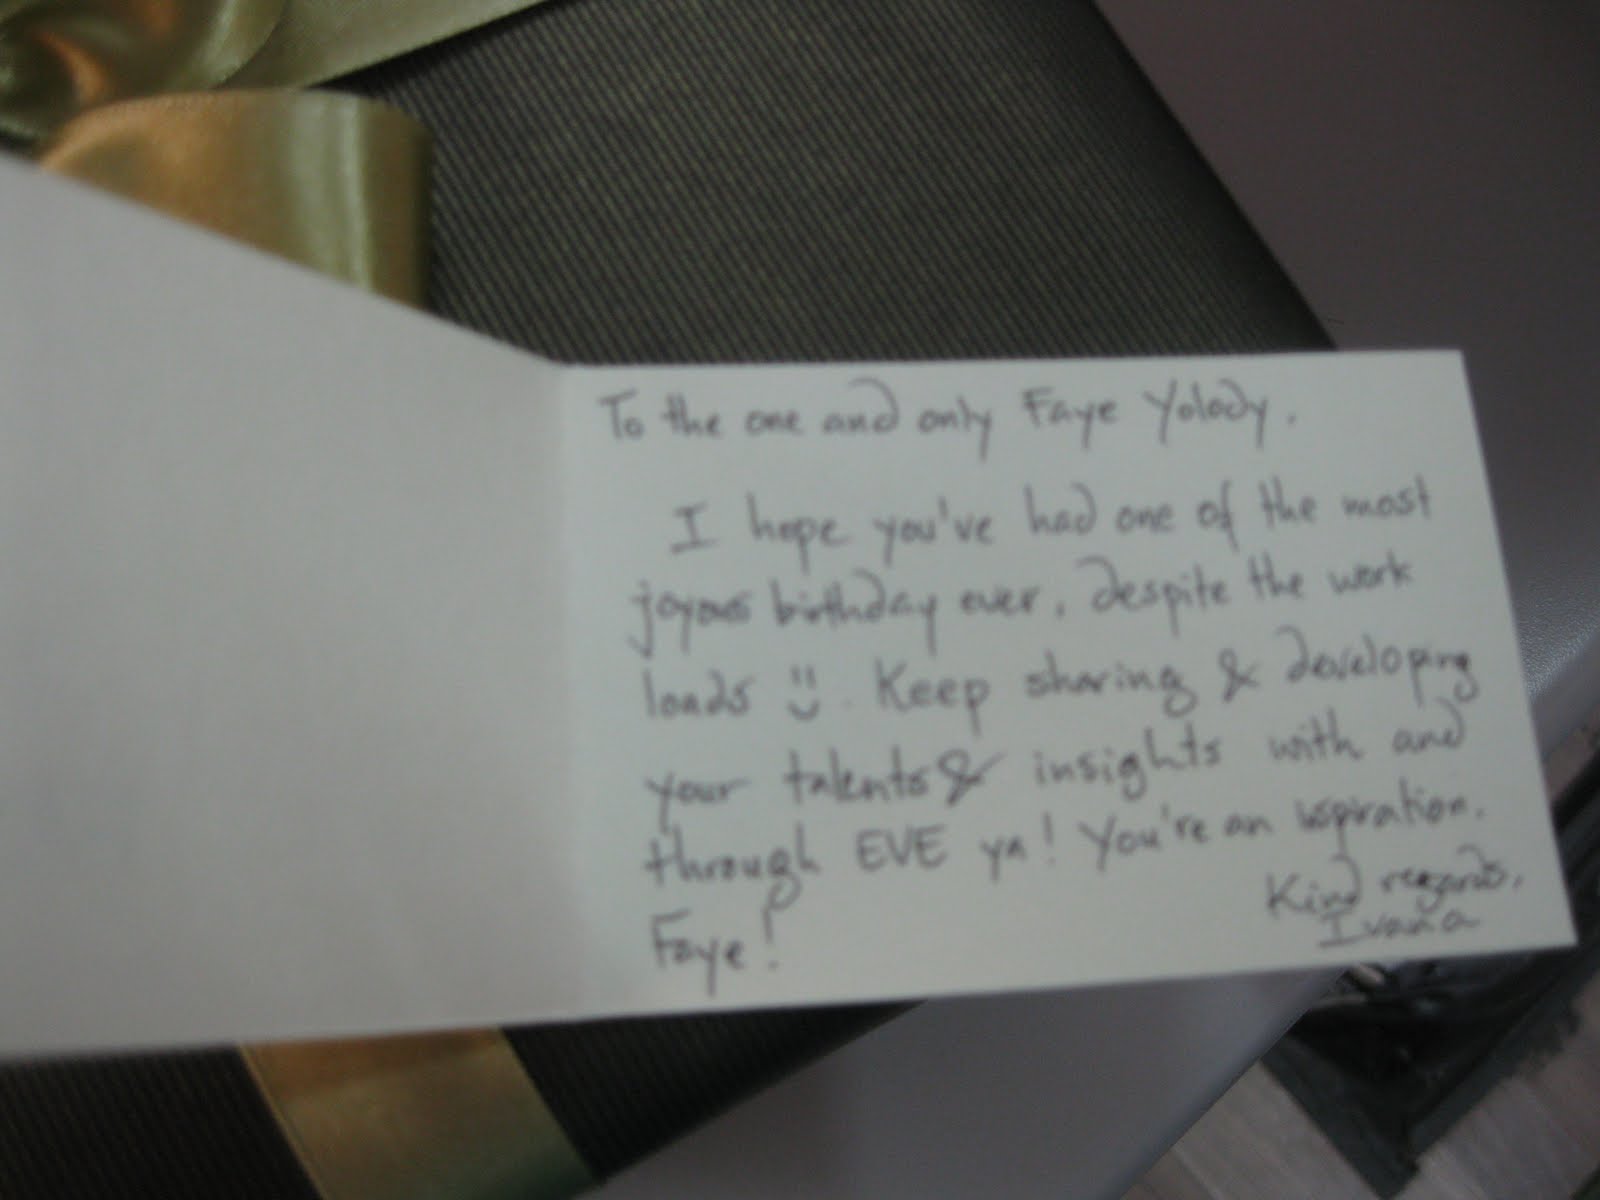 To the one and only Faye Yolody.
I hope you've had one of the most
joyous birthday ever, despite the work
loads :). Keep sharing & developing
your talents & insights with and
through EVE ya! You're an ispiration.
Faye!
Kind regards,
Ivana